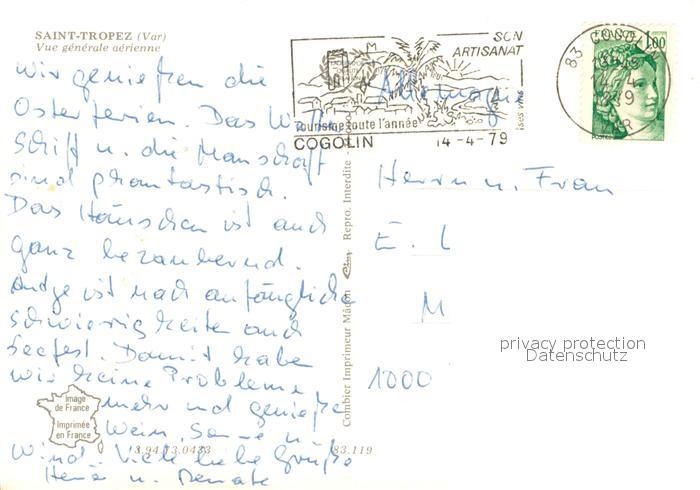 SAINT-TROPEZ (Var)
Vue générale aérienne
wir genießen die
Osterferien. Das Wetter
Schiff u. die Mannschaft
sind phantastisch.
Das Häuschen ist auch
ganz bezaubernd.
ist nach anfänglichen
schwierigkeiten auch
seefest. Damit haben
wir keine Probleme
mehr und genießen
Wein, Sonne u.
Wind. Viele liebe Grüße
u. Renate
Image
de France
Imprimée
en France
3.94.13.0433
83.119
Combier Imprimeur Mâcon Cim Repro. Interdite
SON
ARTISANAT
tourisme toute l'année
COGOLIN 14-4-79
83 COGOLIN
VAR
FRANCE
1,00
POSTES
Allemagne
Herrn u. Frau
E. L
M
1000
privacy protection
Datenschutz